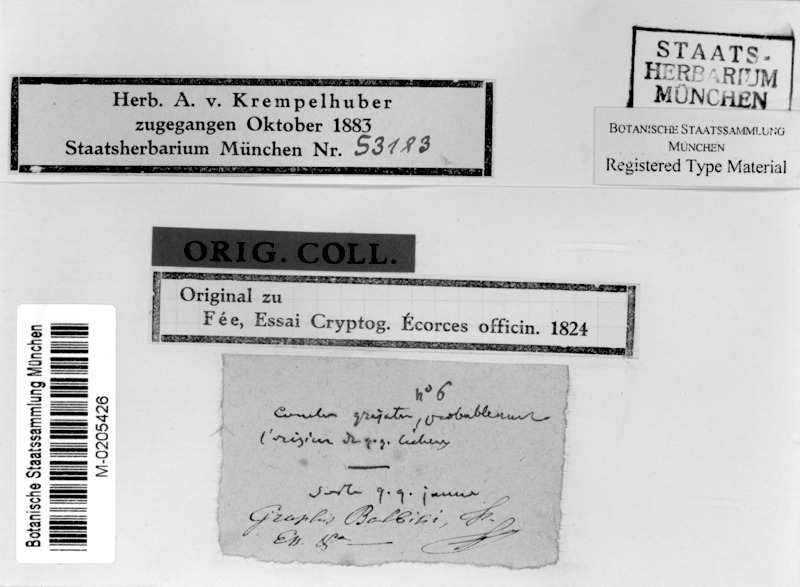 STAATS-
HERBARIUM
MÜNCHEN
Herb. A. v. Krempelhuber
zugegangen Oktober 1883
Staatsherbarium München Nr. 53183
BOTANISCHE STAATSSAMMLUNG
MUNCHEN
Registered Type Material
ORIG. COLL.
Original zu
Fée, Essai Cryptog. Écorces officin. 1824
Botanische Staatssammlung München
M-0205426
nº 6
probablement
l'origine de q.q. lichens
q. q. jaune
Graphis Balbisii,